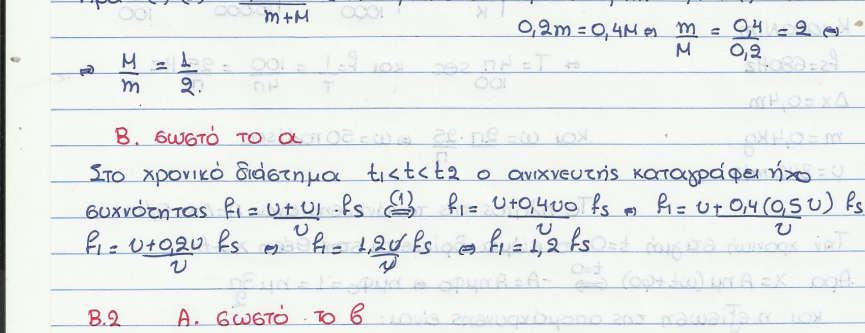 m+M
0,2m = 0,4M ⇔ m/M = 0,4/0,2 = 2 ⇔
⇒ M/m = 1/2.
Β. Σωστό το α
Στο χρονικό διάστημα t1<t<t2 ο ανιχνευτής καταγράφει ήχο
συχνότητας f1 = υ+υ1/υ · fs (1)⇔ f1 = υ+0,4υ0/υ fs ⇔ f1 = υ+0,4(0,5υ)/υ fs
f1 = υ+0,2υ/υ fs ⇔ f1 = 1,2υ/υ fs ⇔ f1 = 1,2 fs
Β.2 Α. Σωστό το β